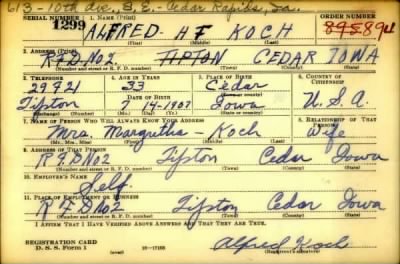 613-10th Ave., S.E.- Cedar Rapids, Ia.
SERIAL NUMBER 1. NAME (Print) ORDER NUMBER
1299 ALFRED HF KOCH
(First) (Middle) (Last)
2. ADDRESS (Print)
R.F.D-NO2. TIPTON CEDAR IOWA
(Number and street or R. F. D. number) (Town) (County) (State)
3. TELEPHONE 4. AGE IN YEARS 5. PLACE OF BIRTH 6. COUNTRY OF CITIZENSHIP
29F21 33 Cedar
DATE OF BIRTH (Town or county)
Tipton 7 14-1907 Iowa U.S.A.
(Exchange) (Number) (Mo.) (Day) (Yr.) (State or country)
7. NAME OF PERSON WHO WILL ALWAYS KNOW YOUR ADDRESS 8. RELATIONSHIP OF THAT PERSON
Mrs. Margretha - Koch Wife
(Mr., Mrs., Miss) (First) (Middle) (Last)
9. ADDRESS OF THAT PERSON
R F D NO2 Tipton Cedar Iowa
(Number and street or R. F. D. number) (Town) (County) (State)
10. EMPLOYER'S NAME
Self.
11. PLACE OF EMPLOYMENT OR BUSINESS
R F D NO2 Tipton Cedar Iowa
(Number and street or R. F. D. number) (Town) (County) (State)
I AFFIRM THAT I HAVE VERIFIED ABOVE ANSWERS AND THAT THEY ARE TRUE.
REGISTRATION CARD
D. S. S. Form 1 (over) 16-17105 Alfred Koch
(Registrant's signature)